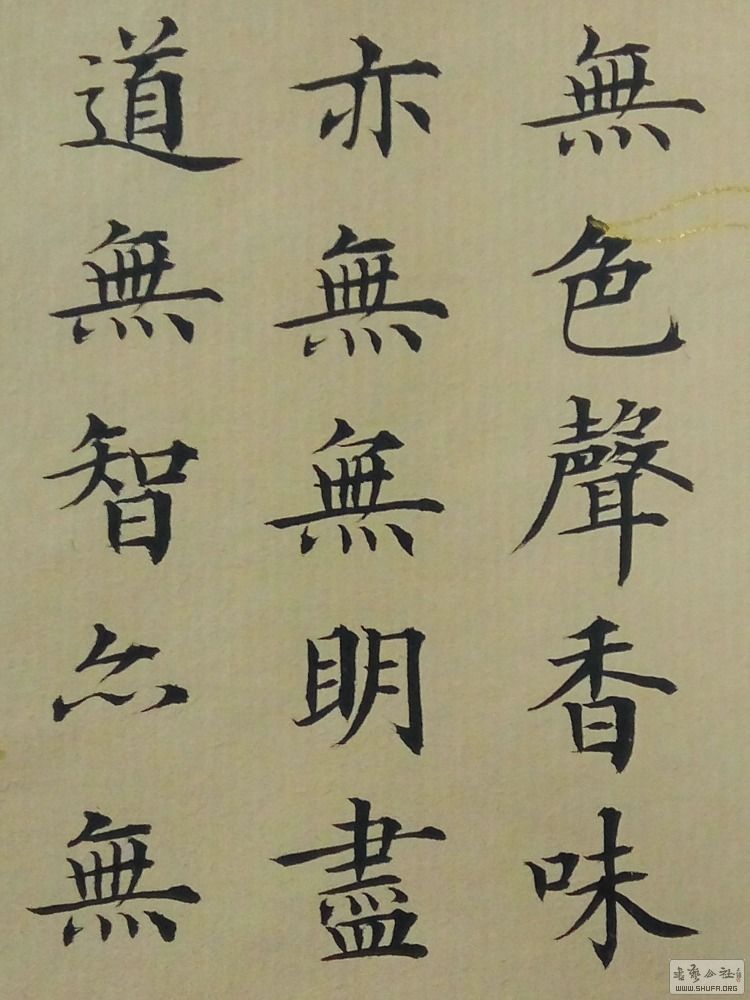 無色聲香味
亦無無明盡
道無智亦無
WWW.SHUFA.ORG